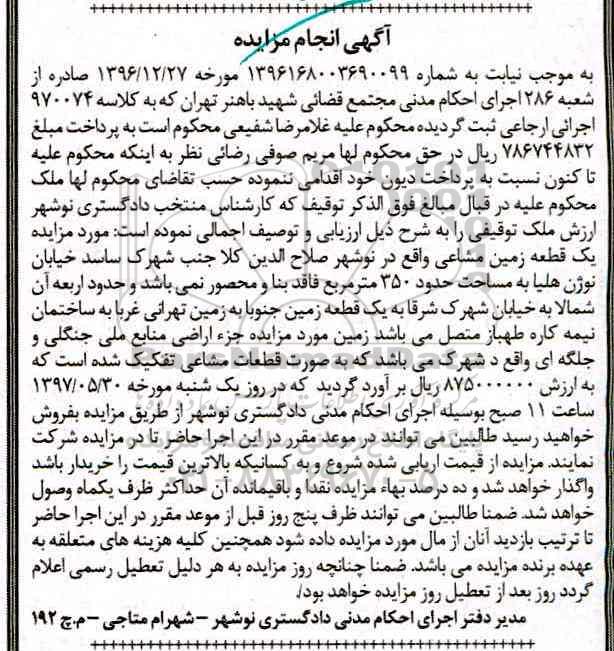 آگهی انجام مزایده
به موجب نیابت به شماره ۱۳۹۶۱۶۸۰۰۳۶۹۰۰۹۹ مورخه ۱۳۹۶/۱۲/۲۷ صادره از
شعبه ۲۸۶ اجرای احکام مدنی مجتمع قضائی شهید باهنر تهران که به کلاسه ۹۷۰۰۷۴
اجرائی ارجاعی ثبت گردیده محکوم علیه غلامرضا شفیعی محکوم است به پرداخت مبلغ
۷۸۶۷۴۴۸۳۲ ریال در حق محکوم لها مریم صوفی رضائی نظر به اینکه محکوم علیه
تا کنون نسبت به پرداخت دیون خود اقدامی ننموده حسب تقاضای محکوم لها ملک
محکوم علیه در قبال مبالغ فوق الذکر توقیف که کارشناس منتخب دادگستری نوشهر
ارزش ملک توقیفی را به شرح ذیل ارزیابی و توصیف اجمالی نموده است: مورد مزایده
یک قطعه زمین مشاعی واقع در نوشهر صلاح الدین کلا جنب شهرک ساسد خیابان
نوژن هلیا به مساحت حدود ۳۵۰ مترمربع فاقد بنا و محصور نمی باشد و حدود اربعه آن
شمالا به خیابان شهرک شرقا به یک قطعه زمین جنوبا به زمین تهرانی غربا به ساختمان
نیمه کاره طهباز متصل می باشد زمین مورد مزایده جزء اراضی منابع ملی جنگلی و
جلگه ای واقع د شهرک می باشد که به صورت قطعات مشاعی تفکیک شده است که
به ارزش ۸۷۵۰۰۰۰۰۰ ریال بر آورد گردید که در روز یک شنبه مورخه ۱۳۹۷/۰۵/۳۰
ساعت ۱۱ صبح بوسیله اجرای احکام مدنی دادگستری نوشهر از طریق مزایده بفروش
خواهید رسید طالبین می توانند در موعد مقرر در این اجرا حاضر تا در مزایده شرکت
نمایند. مزایده از قیمت اریابی شده شروع و به کسانیکه بالاترین قیمت را خریدار باشد
واگذار خواهد شد و ده درصد بهاء مزایده نقدا و باقیمانده آن حداکثر ظرف یکماه وصول
خواهد شد. ضمنا طالبین می توانند ظرف پنج روز قبل از موعد مقرر در این اجرا حاضر
تا ترتیب بازدید آنان از مال مورد مزایده داده شود همچنین کلیه هزینه های متعلقه به
عهده برنده مزایده می باشد. ضمنا چنانچه روز مزایده به هر دلیل تعطیل رسمی اعلام
گردد روز بعد از تعطیل روز مزایده خواهد بود/.
مدیر دفتر اجرای احکام مدنی دادگستری نوشهر – شهرام متاجی – م.چ ۱۹۲